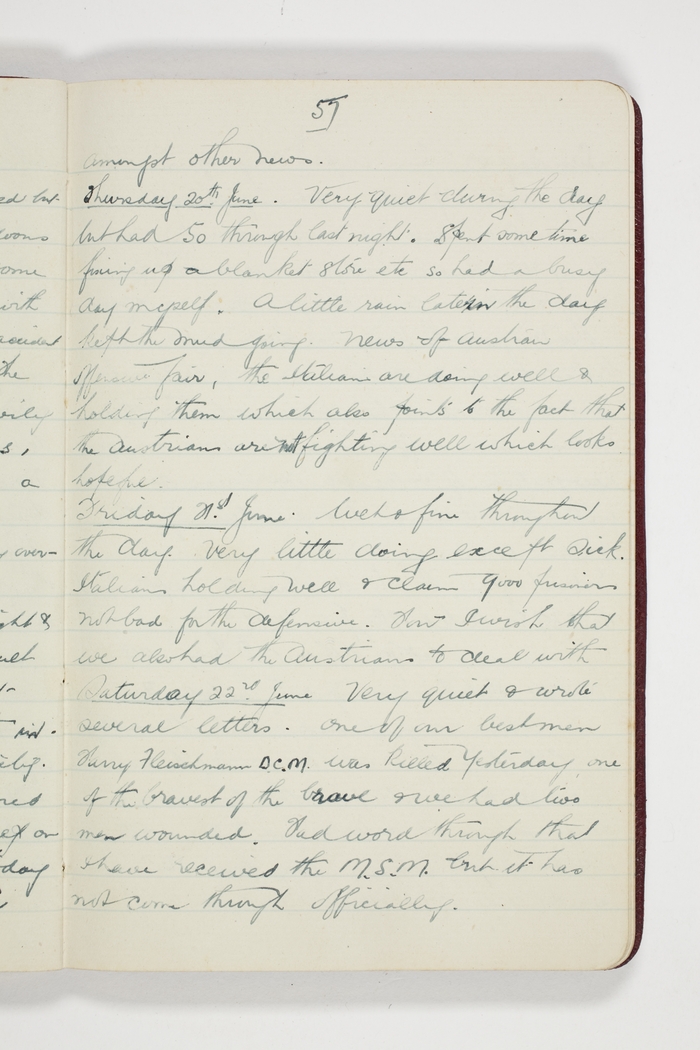 57
amongst other news.
Thursday 20th June. Very quiet during the day
but had 50 through last night. Spent some time
fixing up a blanket store etc so had a busy
day myself. A little rain later in the day
kept the mud going. News of Austrian
offensive fair, the Italians are doing well &
holding them which also points to the fact that
the Austrians are not fighting well which looks
hopeful.
Friday 21st June. Wet & fine throughout
the day. Very little doing except sick.
Italians holding well & claim 9000 prisoners
not bad for the defensive. How I wish that
we also had the Austrians to deal with
Saturday 22nd June Very quiet & wrote
several letters. One of our best men
Harry Fleischmann D.C.M. was killed yesterday, one
of the bravest of the brave & we had two
men wounded. Had word through that
I have received the M.S.M. but it has
not come through officially.
ed but
oons
ome
with
accident
the
vily
s,
a
over-
ight &
red
day